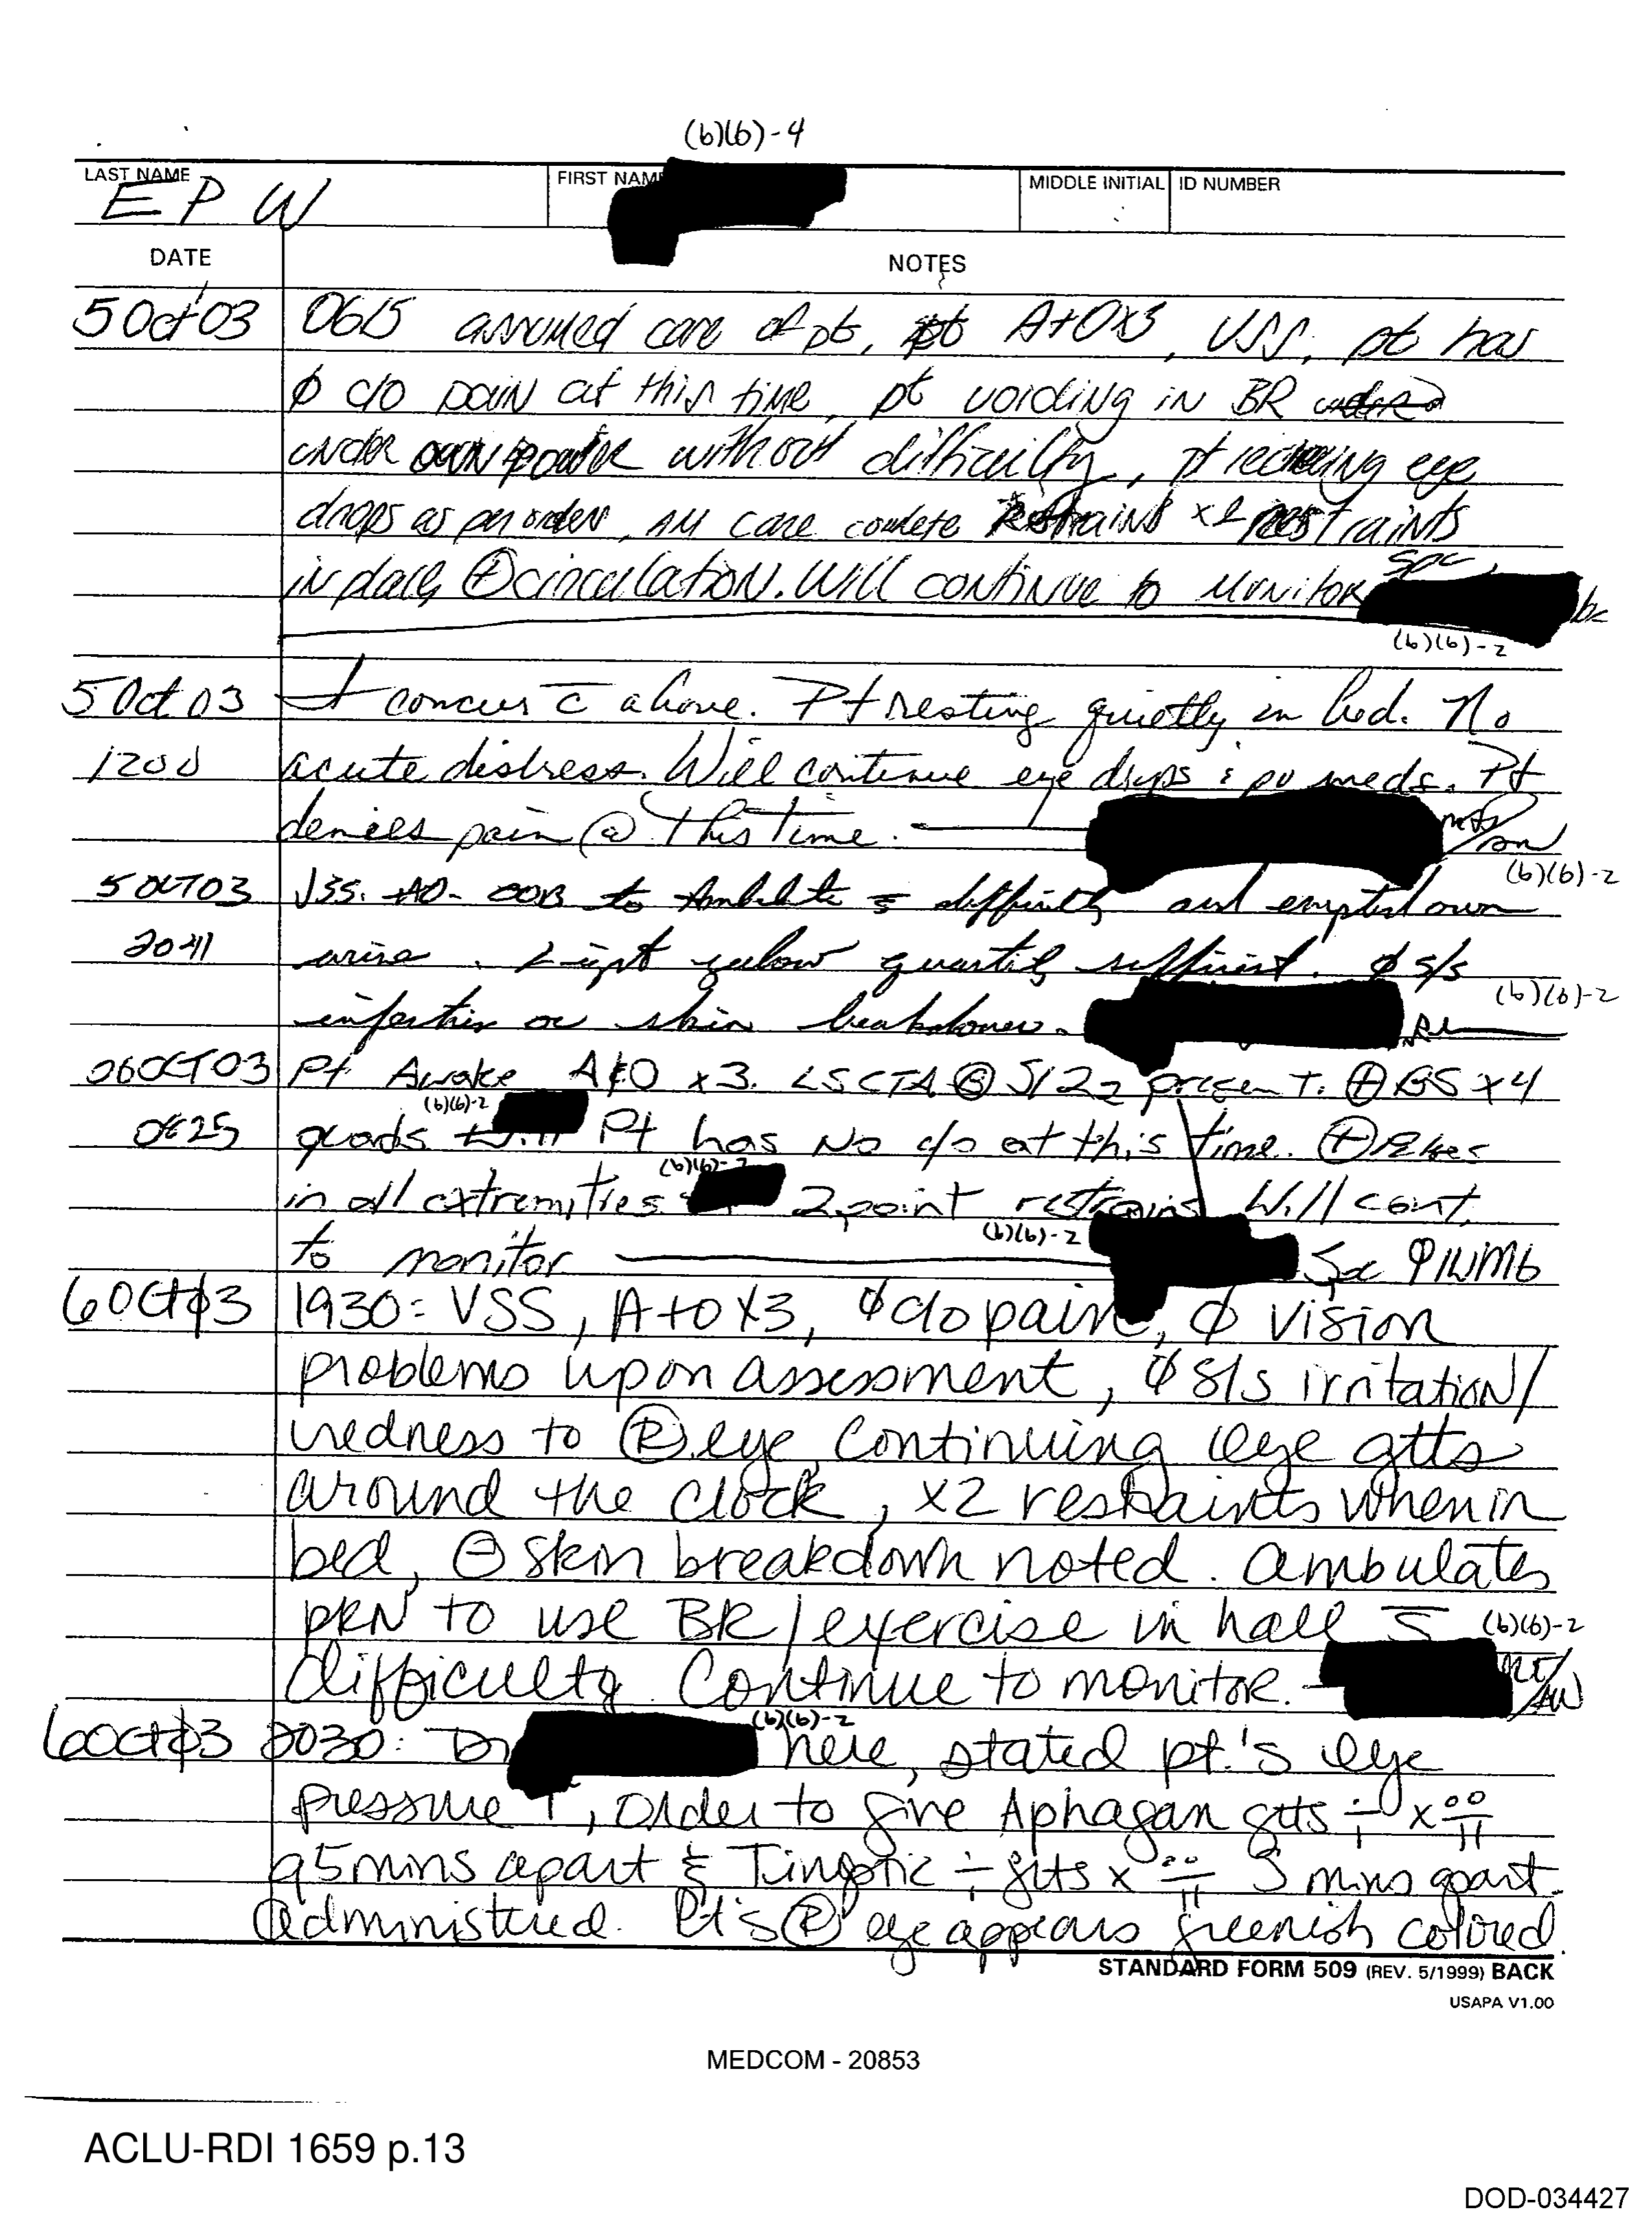 (b)(6)-4
LAST NAME FIRST NAME MIDDLE INITIAL ID NUMBER
EPW
DATE NOTES
5 Oct 03 0615 assumed care of pt, pt A+Ox3, VSS, pt has
φ c/o pain at this time, pt voiding in BR
under own power without difficulty, pt receiving eye
drops as per orders, AM care complete restraints x2 restraints
in place, ⊕ circulation. Will continue to monitor SPC
(b)(6)-2
5 Oct 03 I concur c̄ above. Pt resting quietly in bed. No
1200 acute distress. Will continue eye drops & po meds. Pt
denies pain @ this time.
(b)(6)-2
5 OCT 03 VSS. AO- OOB to Ambulate s̄ difficulty and emptied own
2041 urine. Light yellow quantity sufficient. φ s/s
(b)(6)-2
infection or skin breakdown.
06 OCT 03 Pt Awake A&O x3. LSCTA Ⓑ S1S2 present. ⊕ BS x4
(b)(6)-2
0625 quads Pt has No c/o at this time. ⊕ Pulses
(b)(6)-2
in all extremities 2 point restrains Will cont.
(b)(6)-2
to monitor 91WM6
6 Oct φ3 1930: VSS, A+O x3, φ c/o pain, φ vision
problems upon assessment, φ s/s irritation/
redness to Ⓡ eye, continuing eye gtts
around the clock, x2 restraints when in
bed, ⊖ skin breakdown noted. Ambulates
PRN to use BR/exercise in hall s̄ (b)(6)-2
difficulty. Continue to monitor.
(b)(6)-2
6 Oct φ3 2030: Dr here, stated pt.'s eye
pressure ↑, order to give Aphagan gtts i x ii
q5mins apart & Timoptic i gtts x ii 5 mins apart.
Administered. Pt's Ⓡ eye appears greenish colored.
STANDARD FORM 509 (REV. 5/1999) BACK
USAPA V1.00
MEDCOM - 20853
ACLU-RDI 1659 p.13
DOD-034427